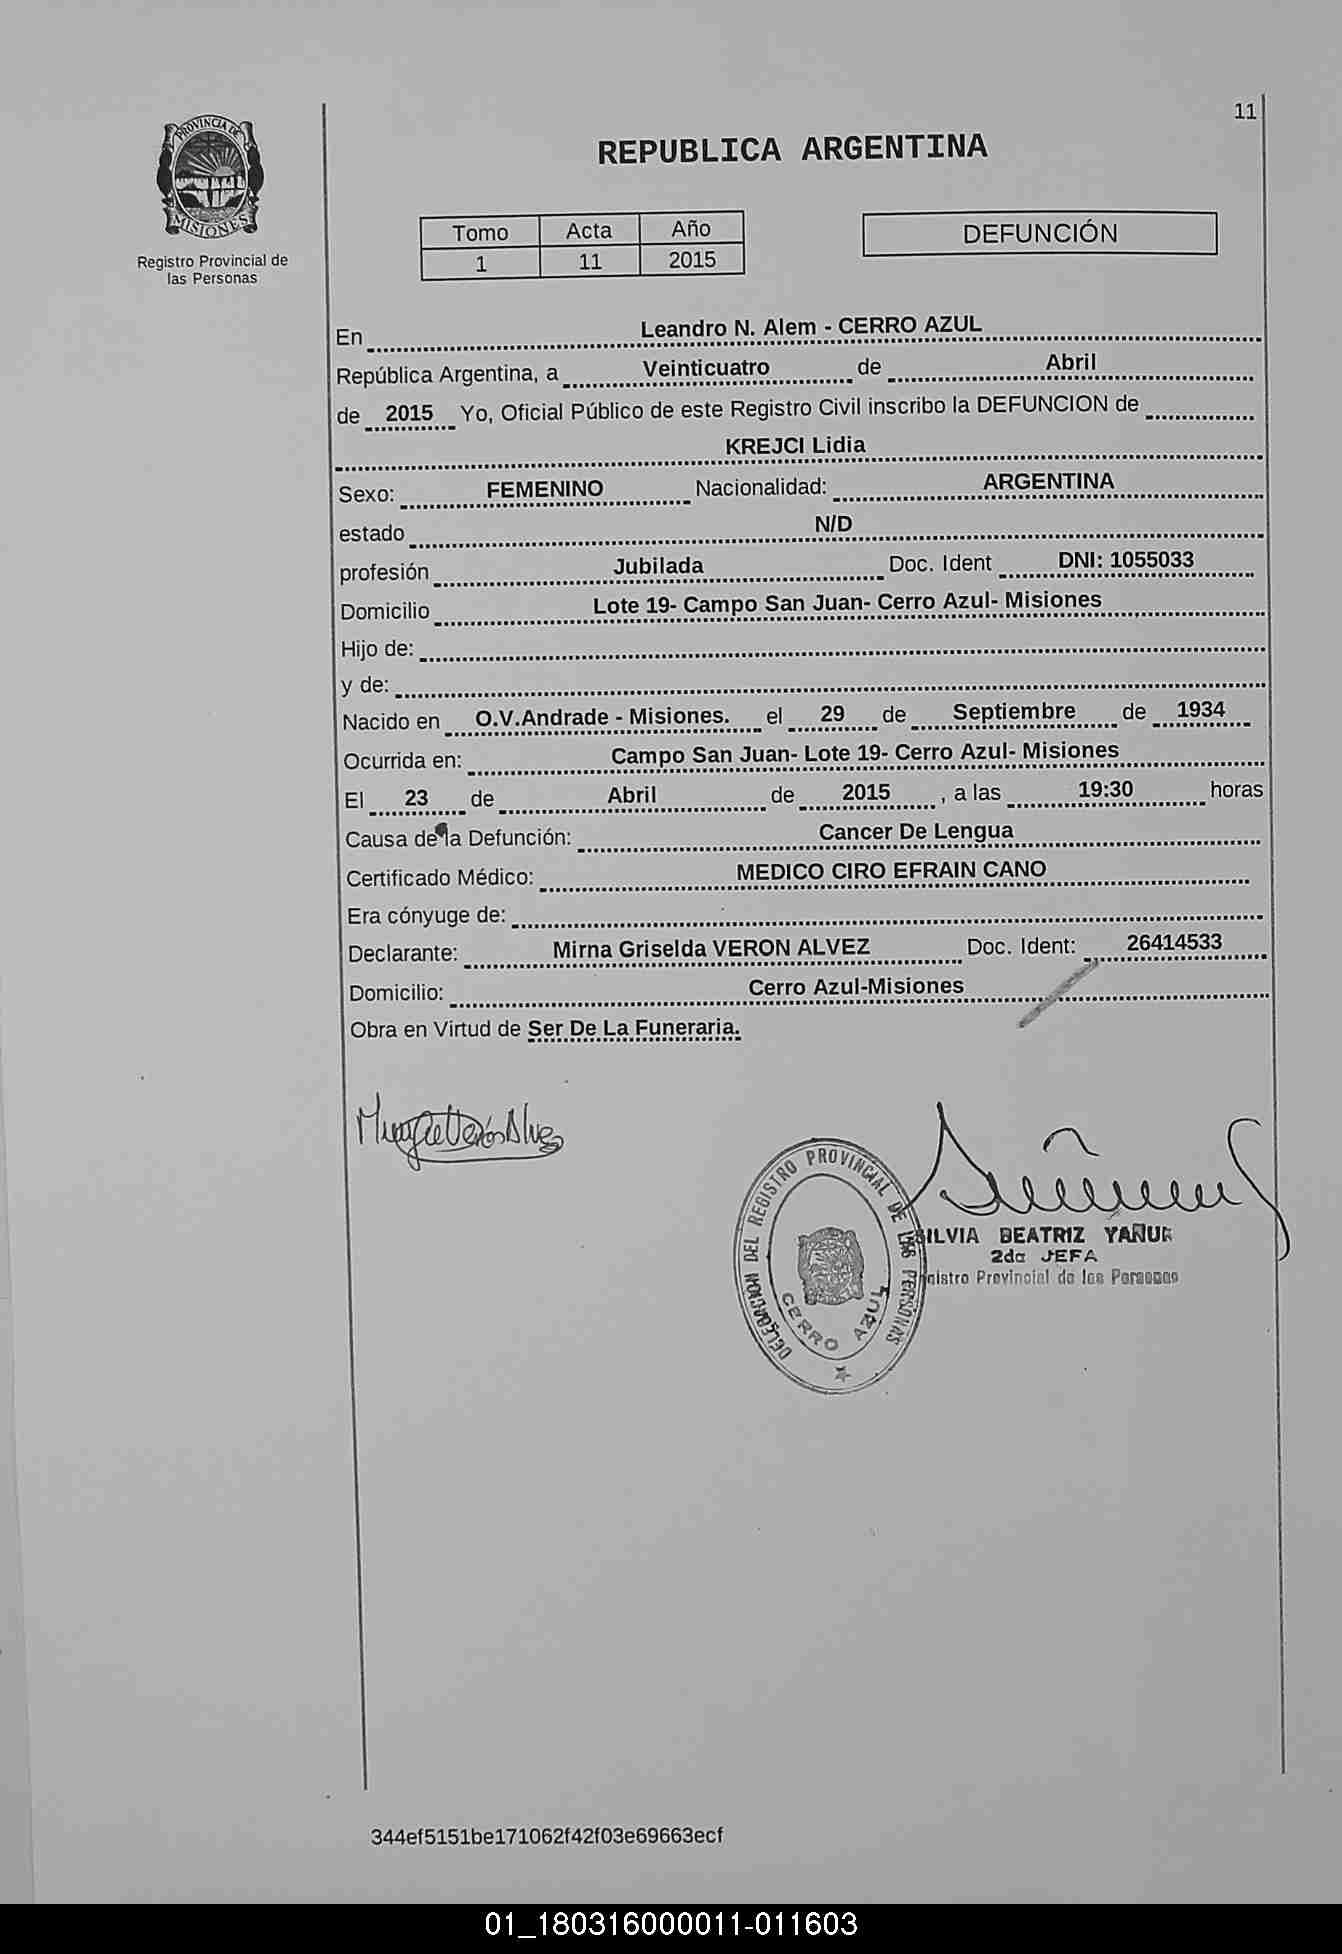 11
PROVINCIA DE
MISIONES
Registro Provincial de
las Personas
REPUBLICA ARGENTINA
Tomo Acta Año
1 11 2015
DEFUNCIÓN
En Leandro N. Alem - CERRO AZUL
República Argentina, a Veinticuatro de Abril
de 2015 Yo, Oficial Público de este Registro Civil inscribo la DEFUNCION de
KREJCI Lidia
Sexo: FEMENINO Nacionalidad: ARGENTINA
estado N/D
profesión Jubilada Doc. Ident DNI: 1055033
Domicilio Lote 19- Campo San Juan- Cerro Azul- Misiones
Hijo de:
y de:
Nacido en O.V.Andrade - Misiones. el 29 de Septiembre de 1934
Ocurrida en: Campo San Juan- Lote 19- Cerro Azul- Misiones
El 23 de Abril de 2015 , a las 19:30 horas
Causa de la Defunción: Cancer De Lengua
Certificado Médico: MEDICO CIRO EFRAIN CANO
Era cónyuge de:
Declarante: Mirna Griselda VERON ALVEZ Doc. Ident: 26414533
Domicilio: Cerro Azul-Misiones
Obra en Virtud de Ser De La Funeraria.
DELEGACION DEL REGISTRO PROVINCIAL DE LAS PERSONAS
CERRO AZUL
SILVIA BEATRIZ YAÑUK
2da JEFA
Provincial de las Personas
344ef5151be171062f42f03e69663ecf
01_180316000011-011603